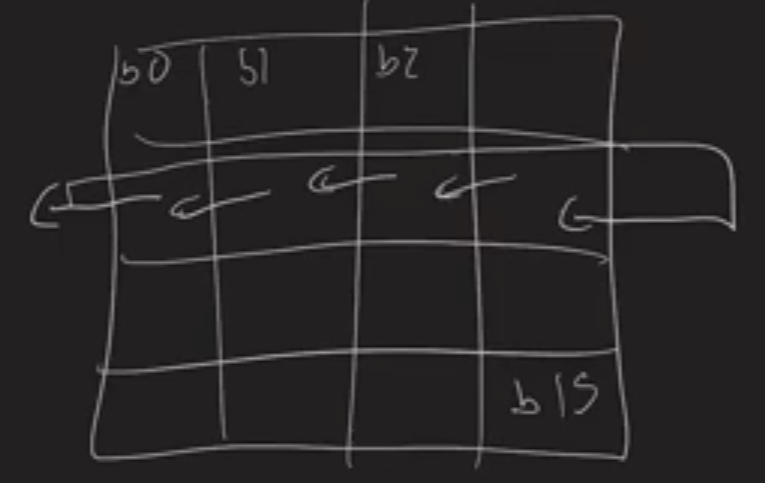 b0 b1 b2
b15